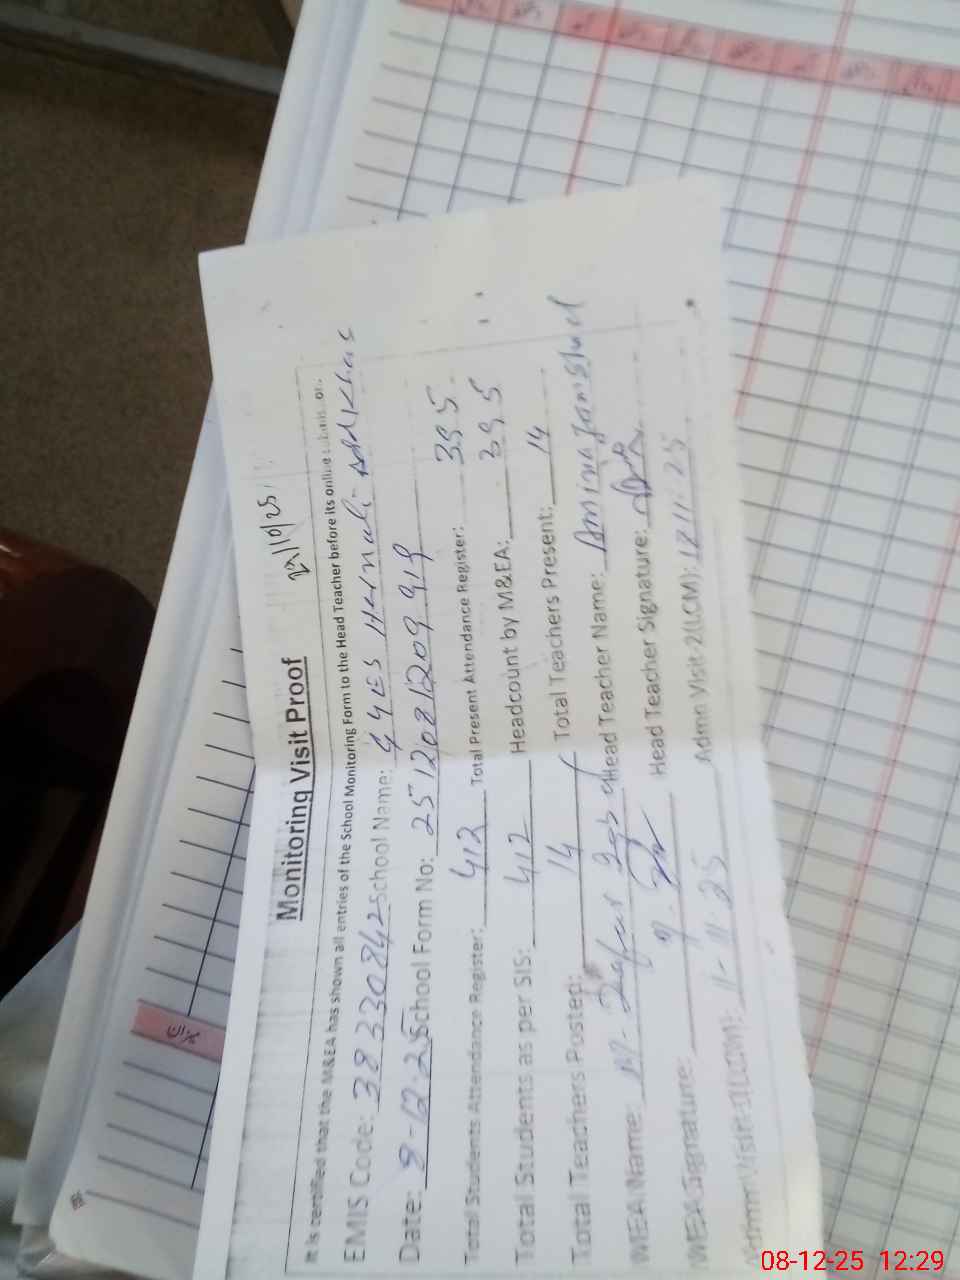 Monitoring Visit Proof
It is certified that the M&EA has shown all entries of the School Monitoring Form to the Head Teacher before its online
EMIS Code: 38330842 School Name: GGES Hernauli Add Khas
Date: 8-12-25 School Form No: 2512081209919
Total Students Attendance Register: 412 Total Present Attendance Register: 395
Total Students as per SIS: 412 Headcount by M&EA: 395
Total Teachers Posted: 14 Total Teachers Present: 14
MEA Name: M. Zafar Head Teacher Name: Amina Jamshed
MEA Signature: Head Teacher Signature:
Admn Visit-1(LCM): 11-11-25 Admn Visit-2(LCM): 18-11-25
08-12-25 12:29